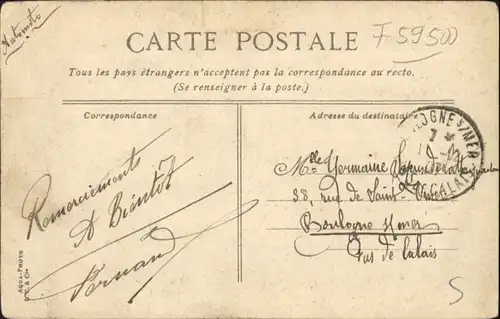 Automoto
F 59500
CARTE POSTALE
Tous les pays étrangers n'acceptent pas la correspondance au recto.
(Se renseigner à la poste;)
Correspondance
Adresse du destinataire
Remerciements
A Bientôt
Fernand
Melle Germaine
38, rue de Saint-
Boulogne s/mer
Pas de Calais
LOGNE S/MER
CALAIS
AQUA-PHOTO
S